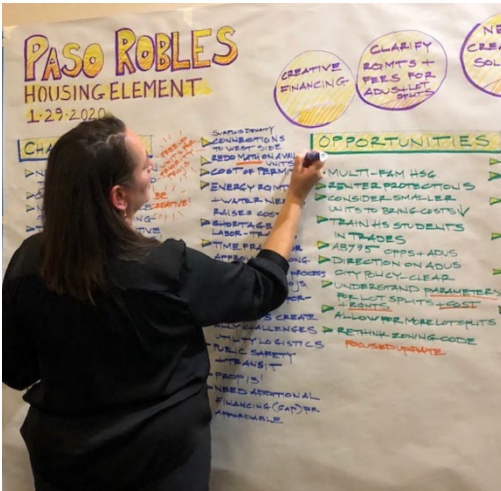 PASO ROBLES
HOUSING ELEMENT
1·29·2020
CREATIVE
FINANCING
CLARIFY
RQMTS +
FEES FOR
ADUS + LOT
SPLITS
NE
CRE
SOL
CHA
BE
CREATIVE!
SURPLUS DENSITY
CONNECTIONS
TO WEST SIDE
REDO MATH ON AVAIL
UNITS
COST OF PERMI
ENERGY RQMT
+ WATER NE
RAISES COS
SHORTAGE
LABOR - TRA
TIME FRA
APPRO
PROCESS
CREATE
CHALLENGES
UTILITY LOGISTICS
PUBLIC SAFETY
+ TRANSIT
PROP 13!
NEED ADDITIONAL
FINANCING (GAP) FOR
AFFORDABLE
OPPORTUNITIES
MULTI-FAM HSG
RENTER PROTECTIONS
CONSIDER SMALLER
UNITS TO BRING COSTS ↓
TRAIN HS STUDENTS
IN TRADES
OPPS + ADUS
DIRECTION ON ADUS
CITY POLICY - CLEAR
UNDERSTAND PARAMETERS
FOR LOT SPLITS + COST
+ RQMTS
ALLOW FOR MORE LOT SPLITS
RETHINK ZONING CODE
FOCUSED UPDATE